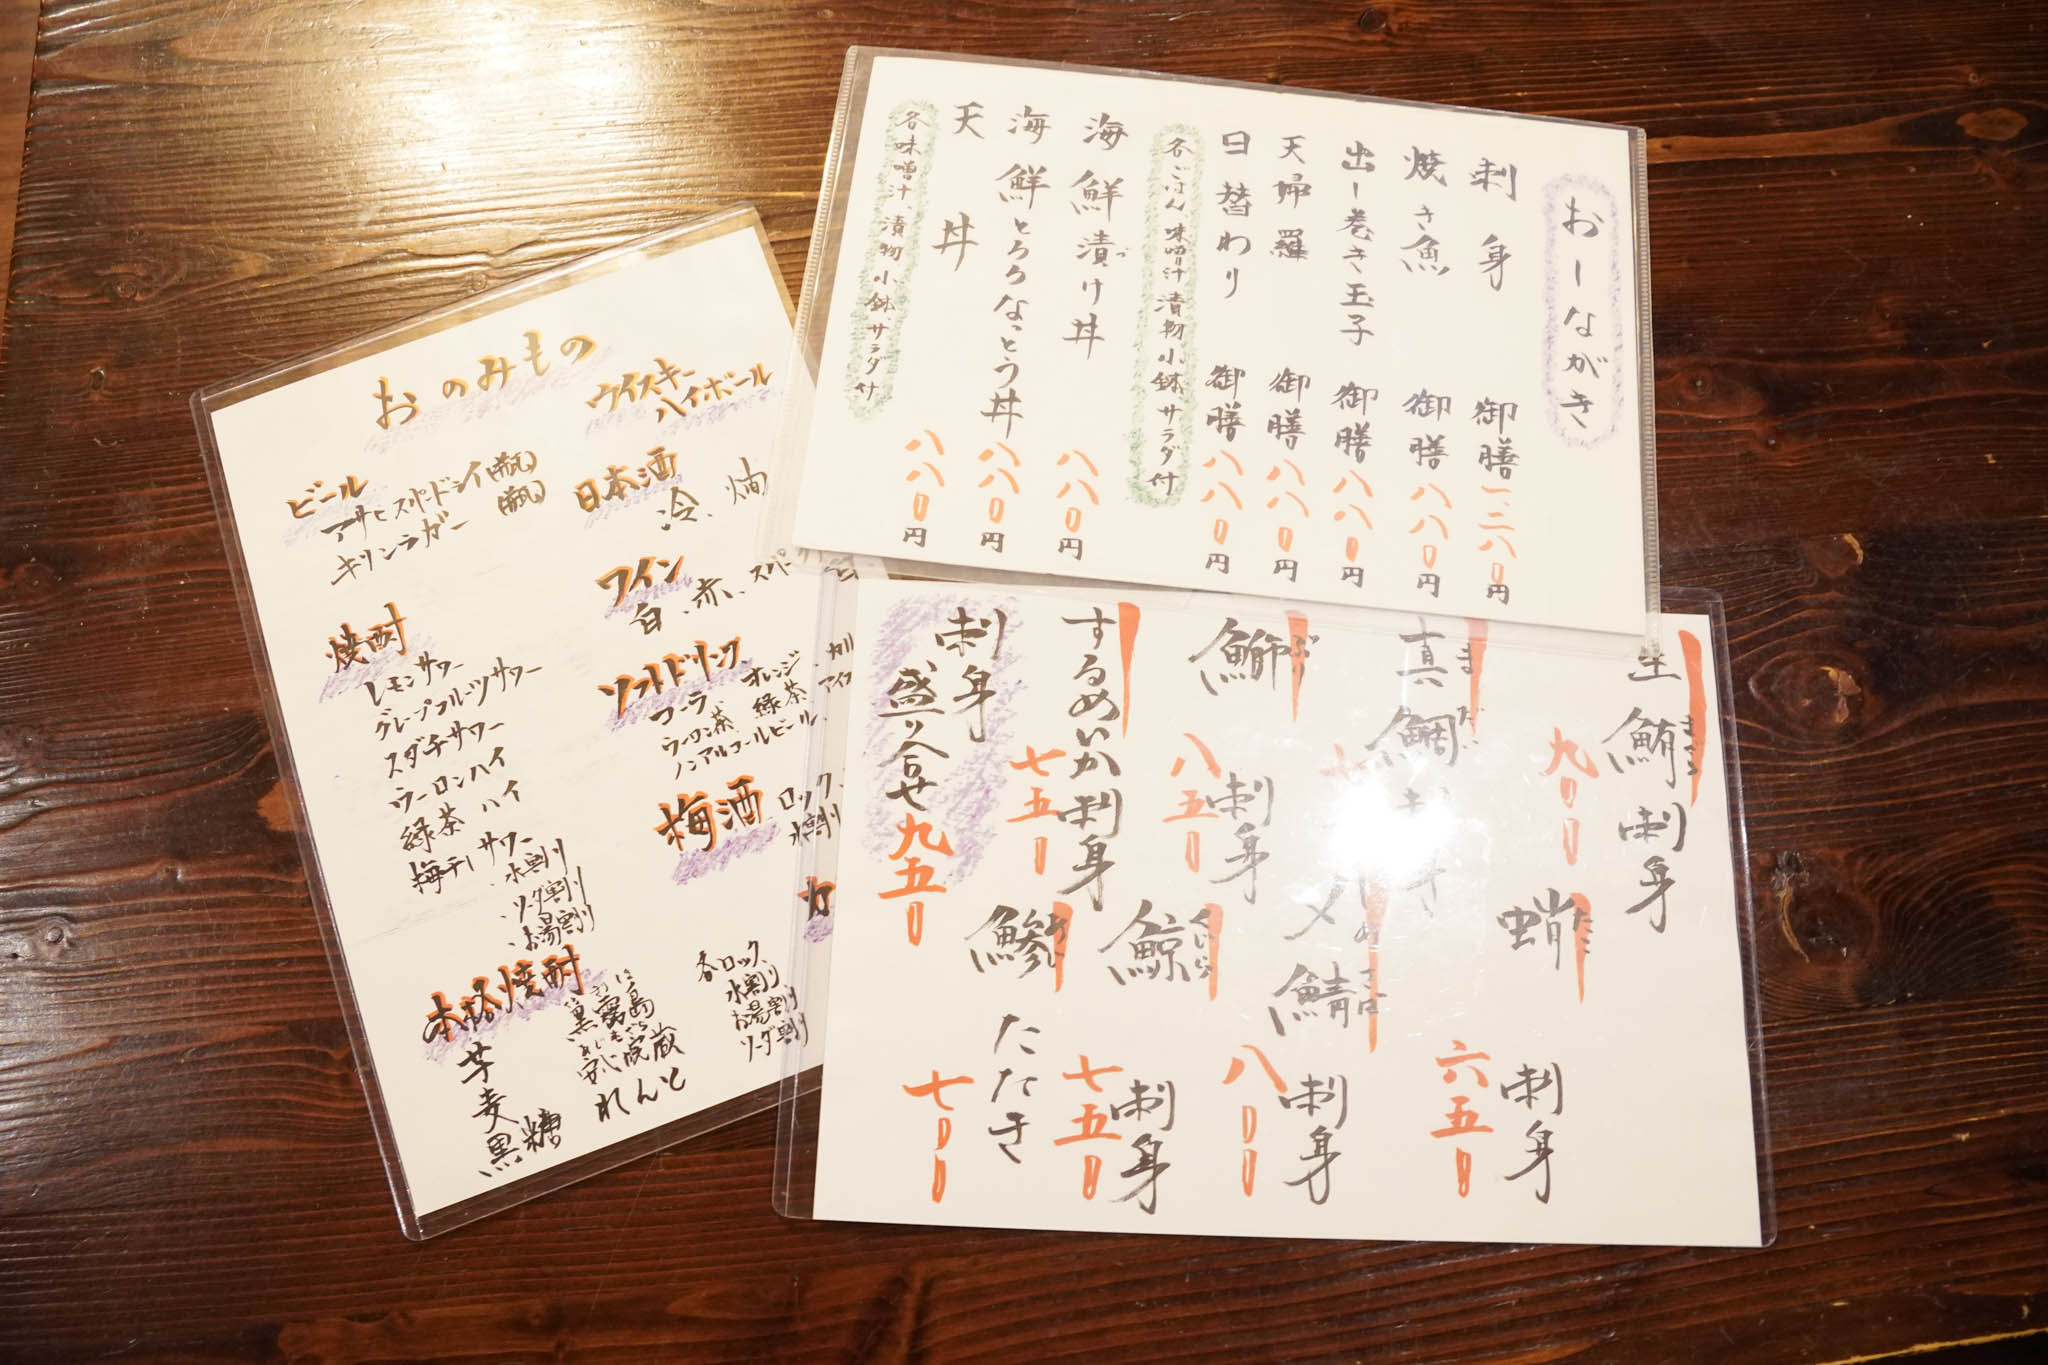 おしながき
刺身御膳一、二八〇円
焼き魚御膳八八〇円
出し巻き玉子御膳八八〇円
天婦羅御膳八八〇円
日替わり御膳八八〇円
各ごはん、味噌汁、漬物、小鉢、サラダ付
海鮮漬け丼八八〇円
海鮮とろろなっとう丼八八〇円
天丼八八〇円
各味噌汁、漬物、小鉢、サラダ付
おのみもの
ビール
アサヒスーパードライ(瓶)
キリンラガー(瓶)
焼酎
レモンサワー
グレープフルーツサワー
スダチサワー
ウーロンハイ
緑茶ハイ
梅干しサワー
、水割り
、ソーダ割り
、お湯割り
本格焼酎
芋 黒霧島
麦 安心院蔵
黒糖 れんと
各ロック
水割り
お湯割り
ソーダ割り
ウイスキー
ハイボール
日本酒
冷、燗
ワイン
白、赤、スパー
ソフトドリンク
コーラ、オレンジ、カル
ウーロン茶、緑茶、アイス
ノンアルコールビール、
梅酒 ロック、
水割り
生鮪まぐろ刺身九〇〇
真鯛まだい刺身
鰤ぶり刺身八五〇
するめいか刺身七五〇
刺身盛り合せ九五〇
蛸たこ刺身六五〇
〆鯖しめさば刺身八〇〇
鯨くじら刺身七五〇
鰺あじたたき七〇〇